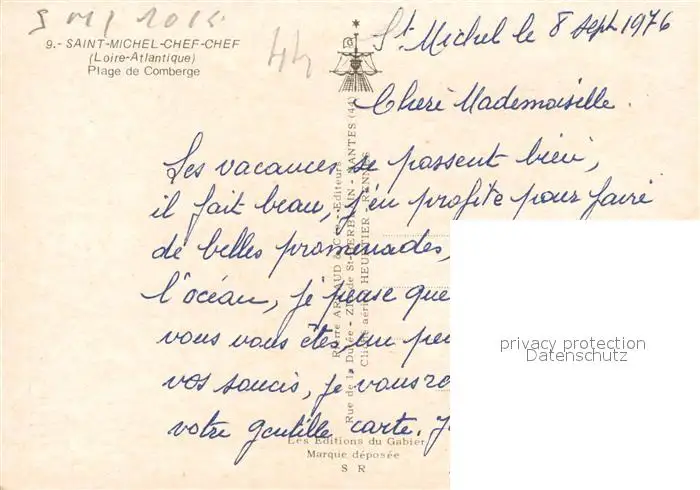 9.- SAINT-MICHEL-CHEF-CHEF
(Loire-Atlantique)
Plage de Comberge
44
St Michel le 8 Sept 1976
Cheré Mademoiselle.
Les vacances se passent bien,
il fait beau, j'en profite pour faire
de belles promenades,
l'océan, je pense que
vous vous êtes un peu
vos soucis, je vous
votre gentille carte. J
Pierre ARTAUD & Cie - Editeurs
Rue de la Dutée - ZI de St-HERBLAIN - NANTES (44)
Cliché aérien HEURTIER - RENNES
Les Editions du Gabier
Marque déposée
S R
privacy protection
Datenschutz